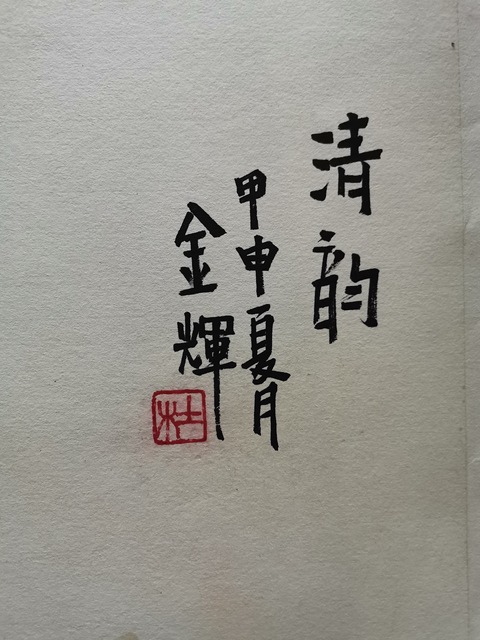 清韵
甲申夏月
金輝